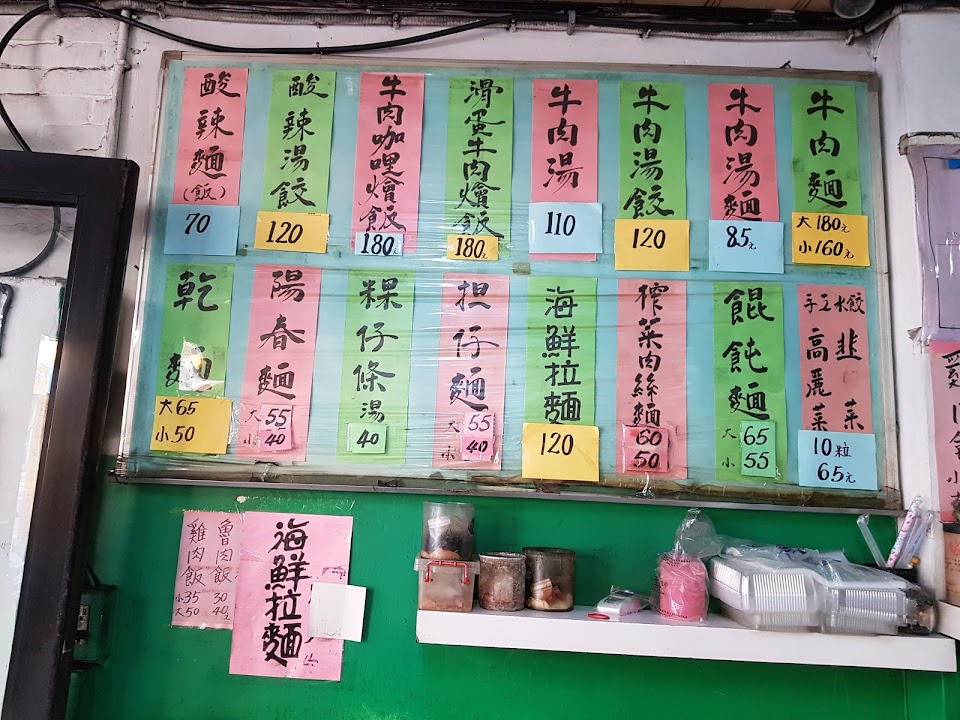 牛肉麵
大180元
小160元
牛肉湯麵
85元
牛肉湯餃
120
牛肉湯
110
滑蛋牛肉燴飯
180
牛肉咖哩燴飯
180
酸辣湯餃
120
酸辣麵
(飯)
70
手工水餃
韭菜
高麗菜
10粒
65元
餛飩麵
大65
小55
榨菜肉絲麵
60
50
海鮮拉麵
120
担仔麵
大55
小40
粿仔條湯
40
陽春麵
大55
小40
乾麵
大65
小50
海鮮拉麵
魯肉飯
30
40元
雞肉飯
小35
大50